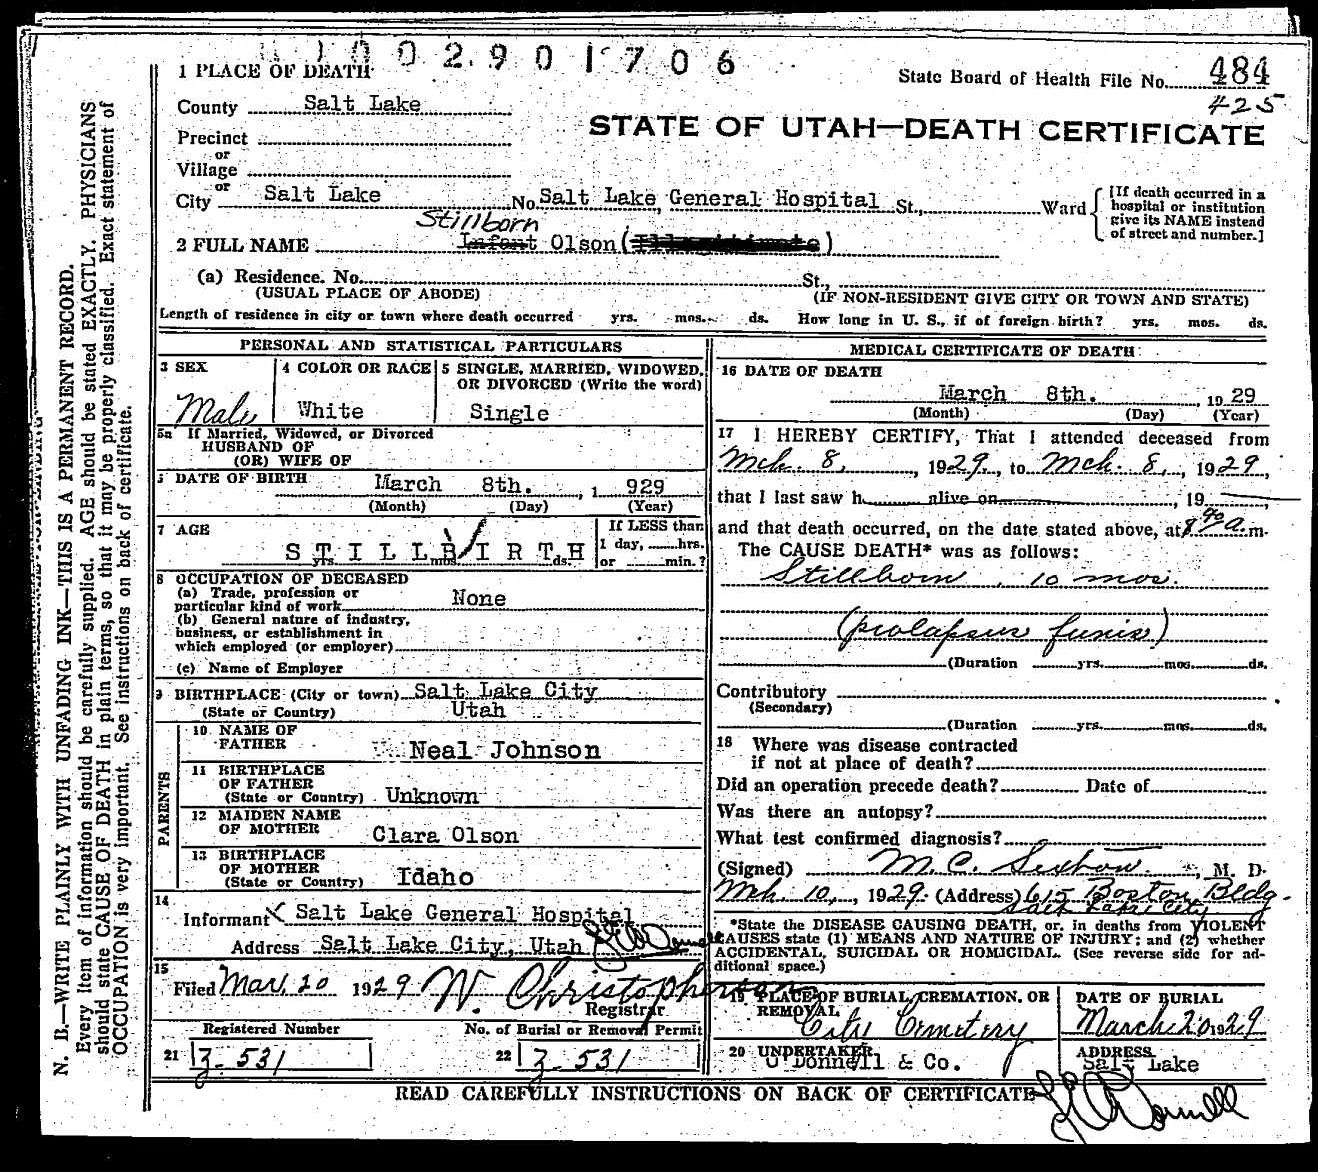 1002901706
1 PLACE OF DEATH
State Board of Health File No. 484
425
County Salt Lake
STATE OF UTAH—DEATH CERTIFICATE
Precinct
or
Village
or
City Salt Lake No. Salt Lake General Hospital St., Ward
[If death occurred in a
hospital or institution
give its NAME instead
of street and number.]
Stillborn
2 FULL NAME Infant Olson (Illegitimate)
(a) Residence. No. St.,
(USUAL PLACE OF ABODE) (IF NON-RESIDENT GIVE CITY OR TOWN AND STATE)
Length of residence in city or town where death occurred yrs. mos. ds. How long in U. S., if of foreign birth? yrs. mos. ds.
PERSONAL AND STATISTICAL PARTICULARS
3 SEX
Male
4 COLOR OR RACE
White
5 SINGLE, MARRIED, WIDOWED,
OR DIVORCED (Write the word)
Single
5a If Married, Widowed, or Divorced
HUSBAND OF
(OR) WIFE OF
DATE OF BIRTH March 8th. , 1 929
(Month) (Day) (Year)
7 AGE
STILLBIRTH
yrs. mos. ds.
If LESS than
1 day, hrs.
or min.?
8 OCCUPATION OF DECEASED
(a) Trade, profession or
particular kind of work None
(b) General nature of industry,
business, or establishment in
which employed (or employer)
(c) Name of Employer
9 BIRTHPLACE (City or town) Salt Lake City
(State or Country) Utah
PARENTS
10 NAME OF
FATHER Neal Johnson
11 BIRTHPLACE
OF FATHER
(State or Country) Unknown
12 MAIDEN NAME
OF MOTHER Clara Olson
13 BIRTHPLACE
OF MOTHER
(State or Country) Idaho
14
Informant X Salt Lake General Hospital
Address Salt Lake City, Utah
15
Filed Mar. 20 1929 W. Christopherson
Registrar
Registered Number No. of Burial or Removal Permit
21 Z-531 22 Z-531
MEDICAL CERTIFICATE OF DEATH
16 DATE OF DEATH
March 8th. , 1929
(Month) (Day) (Year)
17 I HEREBY CERTIFY, That I attended deceased from
Mch. 8, , 1929, to Mch. 8, , 1929,
that I last saw h alive on , 19
and that death occurred, on the date stated above, at 8 40 a.m.
The CAUSE DEATH* was as follows:
Stillborn, 10 mos.
(prolapsus funis)
(Duration yrs. mos. ds.
Contributory
(Secondary)
(Duration yrs. mos. ds.
18 Where was disease contracted
if not at place of death?
Did an operation precede death? Date of
Was there an autopsy?
What test confirmed diagnosis?
(Signed) M. C. , M. D.
Mch 10, , 1929 (Address) 615 Boston Bldg.
Salt Lake City
*State the DISEASE CAUSING DEATH, or, in deaths from VIOLENT
CAUSES state (1) MEANS AND NATURE OF INJURY; and (2) whether
ACCIDENTAL, SUICIDAL OR HOMICIDAL. (See reverse side for ad-
ditional space.)
19 PLACE OF BURIAL, CREMATION, OR
REMOVAL
City Cemetery
DATE OF BURIAL
March 20 1929
20 UNDERTAKER
O'Donnell & Co.
ADDRESS
Salt Lake
READ CAREFULLY INSTRUCTIONS ON BACK OF CERTIFICATE
N. B.—WRITE PLAINLY WITH UNFADING INK—THIS IS A PERMANENT RECORD.
Every item of information should be carefully supplied. AGE should be stated EXACTLY. PHYSICIANS
should state CAUSE OF DEATH in plain terms, so that it may be properly classified. Exact statement of
OCCUPATION is very important. See instructions on back of certificate.